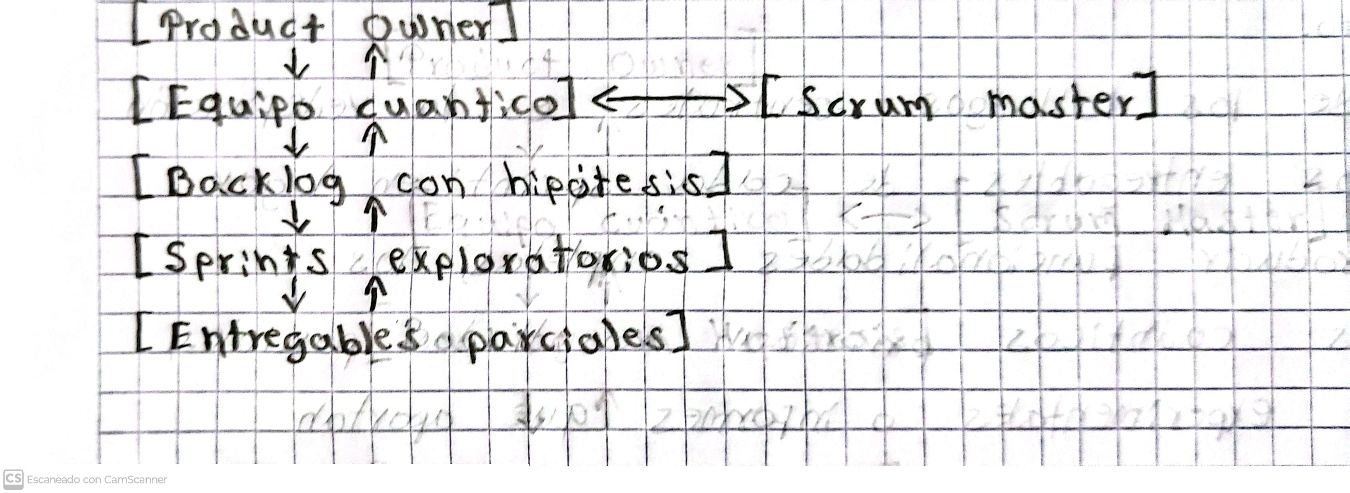 [Product Owner]
↓ ↑
[Equipo cuantico] <-> [Scrum master]
↓ ↑
[Backlog con hipótesis]
↓ ↑
[Sprints exploratorios]
↓ ↑
[Entregables parciales]
CS Escaneado con CamScanner